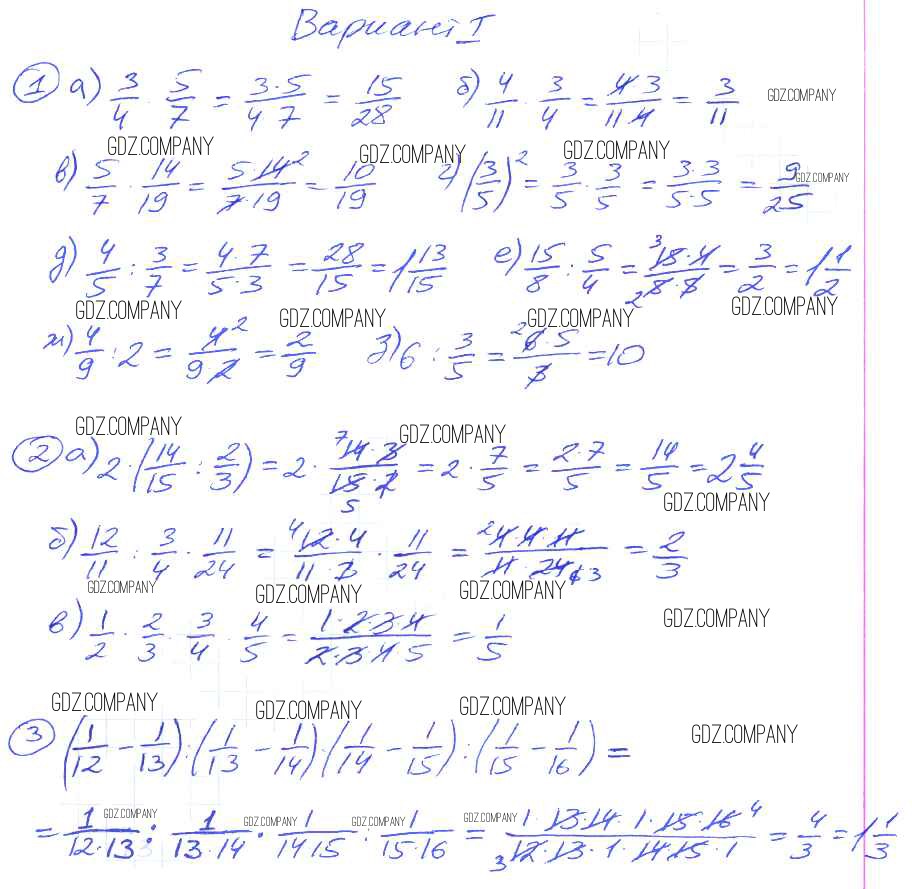 Вариант I
1 а) 3/4 · 5/7 = 3·5/4·7 = 15/28 б) 4/11 · 3/4 = 4·3/11·4 = 3/11 GDZ.COMPANY
GDZ.COMPANY GDZ.COMPANY GDZ.COMPANY
в) 5/7 · 14/19 = 5·14²/7·19 = 10/19 г) (3/5)² = 3/5 · 3/5 = 3·3/5·5 = 9/25 GDZ.COMPANY
д) 4/5 : 3/7 = 4·7/5·3 = 28/15 = 1 13/15 е) 15/8 : 5/4 = 3 15·4/2 8·5 = 3/2 = 1 1/2
GDZ.COMPANY GDZ.COMPANY GDZ.COMPANY GDZ.COMPANY
ж) 4/9 : 2 = 4²/9·2 = 2/9 з) 6 : 3/5 = ²6·5/3 = 10
GDZ.COMPANY GDZ.COMPANY
2 а) 2·(14/15 : 2/3) = 2 · 7 14·3/15·2 5 = 2 · 7/5 = 2·7/5 = 14/5 = 2 4/5
GDZ.COMPANY
б) 12/11 : 3/4 · 11/24 = 4 12·4/11·3 · 11/24 = 2 4·4·11/11·24 6 3 = 2/3
GDZ.COMPANY GDZ.COMPANY GDZ.COMPANY
в) 1/2 · 2/3 · 3/4 · 4/5 = 1·2·3·4/2·3·4·5 = 1/5 GDZ.COMPANY
GDZ.COMPANY GDZ.COMPANY GDZ.COMPANY
3 (1/12 − 1/13):(1/13 − 1/14)·(1/14 − 1/15):(1/15 − 1/16) = GDZ.COMPANY
GDZ.COMPANY GDZ.COMPANY GDZ.COMPANY GDZ.COMPANY
= 1/12·13 : 1/13·14 · 1/14·15 : 1/15·16 = 1·13·14·1·15·16 4/3 12·13·1·14·15·1 = 4/3 = 1 1/3